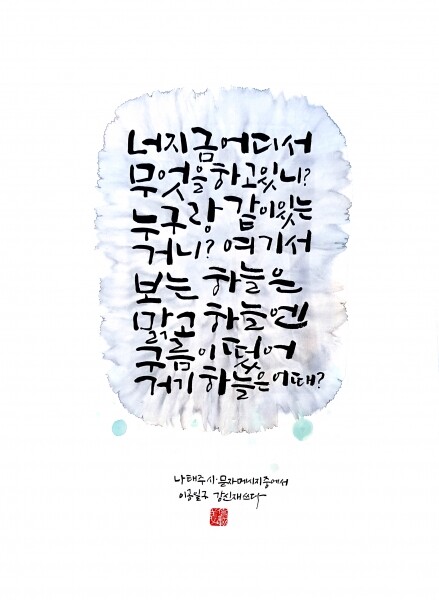 너지금어디서
무엇을하고있니?
누구랑 같이있는
거니? 여기서
보는 하늘은
맑고 하늘엔
구름이 떴어
거기 하늘은 어때?
나태주 시·문자메시지 중에서
이공일구 강신재 쓰다